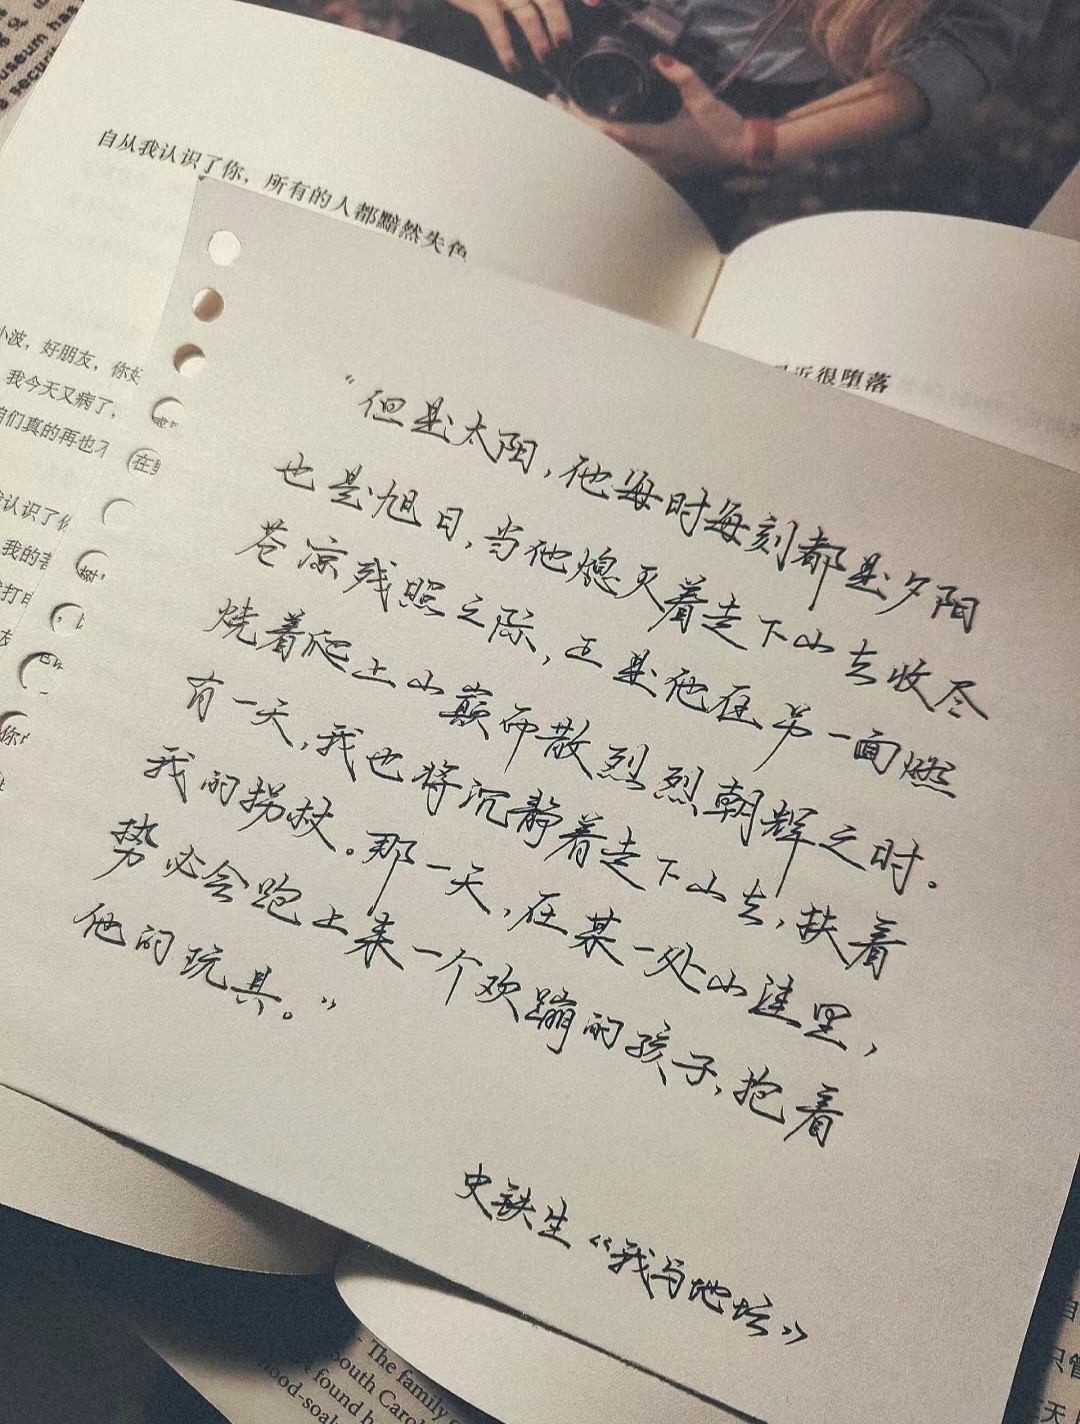 useum has
a secur
自从我认识了你，所有的人都黯然失色
小波，好朋友，你好
我今天又病了，
们真的再也不
在
认识了
我的
打
近很堕落
“但是太阳，他每时每刻都是夕阳
也是旭日，当他熄灭着走下山去收尽
苍凉残照之际，正是他在另一面燃
烧着爬上山巅布散烈烈朝辉之时。
有一天，我也将沉静着走下山去，扶着
我的拐杖。那一天，在某一处山洼里，
势必会跑上来一个欢蹦的孩子，抱着
他的玩具。”
史铁生《我与地坛》
The family
South Carol
found
ood-soa
只管
天